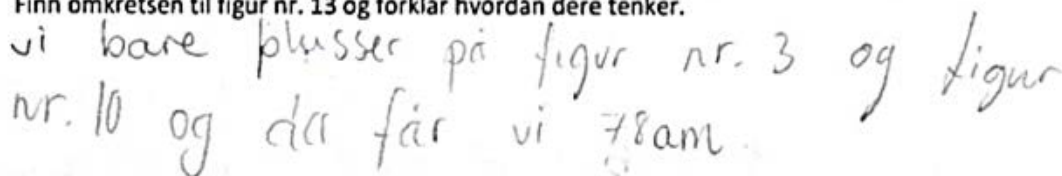 Finn omkretsen til figur nr. 13 og forklar hvordan dere tenker.
vi bare plusser på figur nr. 3 og figur
nr. 10 og da får vi 78am.